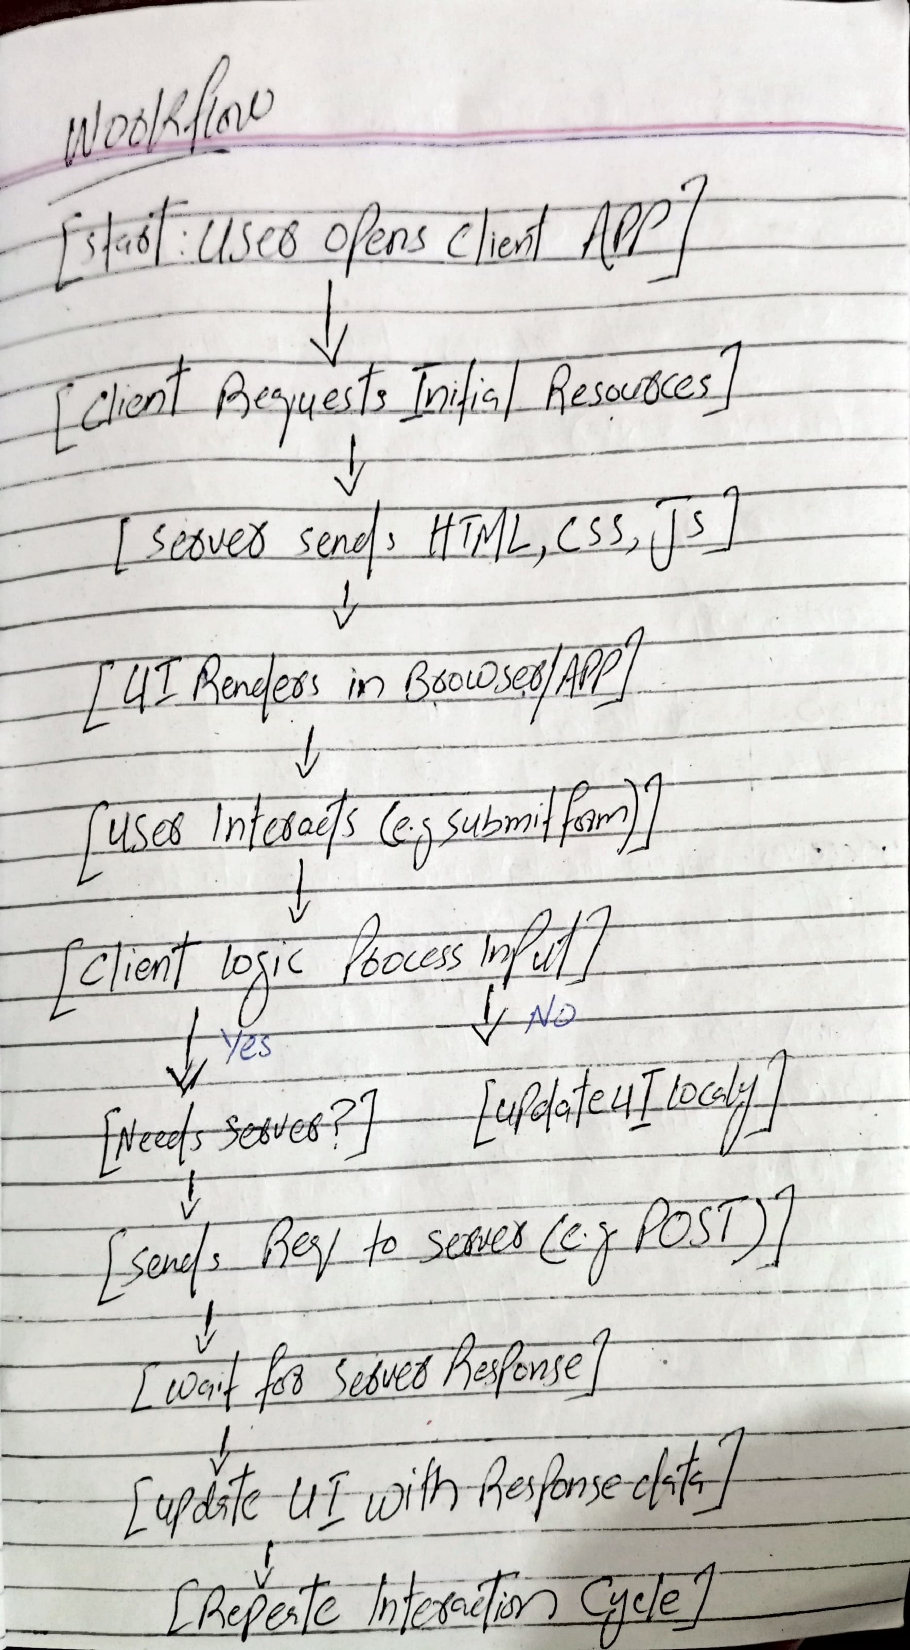 Workflow
[start: User opens client APP]
[Client Requests Initial Resources]
[server sends HTML, CSS, JS]
[UI Renders in Browser/APP]
[User Interacts (e.g submit form)]
[Client logic Process Input]
Yes NO
[Needs server?] [update UI localy]
[sends Req to server (e.g POST)]
[wait for server Response]
[update UI with Response data]
[Repeate Interaction Cycle]